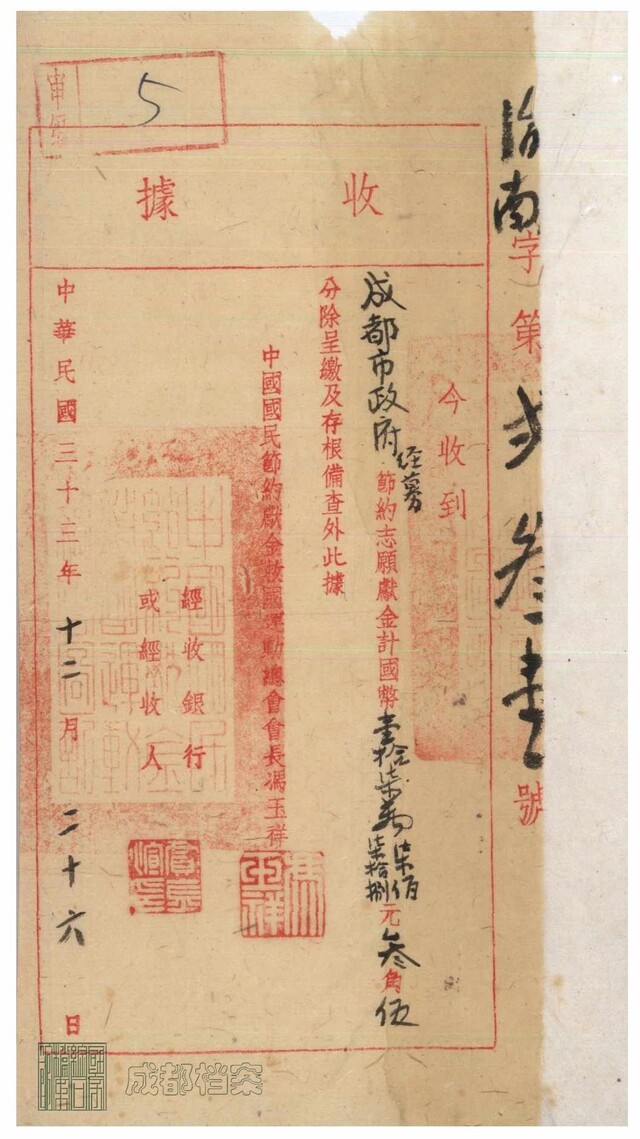 5
收據
南字第贰叁壹號
今收到
成都市政府經募節約志願獻金計國幣壹拾柒萬柒佰柒拾捌元叁角伍
分除呈繳及存根備查外此據
中國國民節約獻金救國運動總會會長馮玉祥
馮玉祥
經收銀行
或經收人
中華民國三十三年十二月二十六日
成都档案